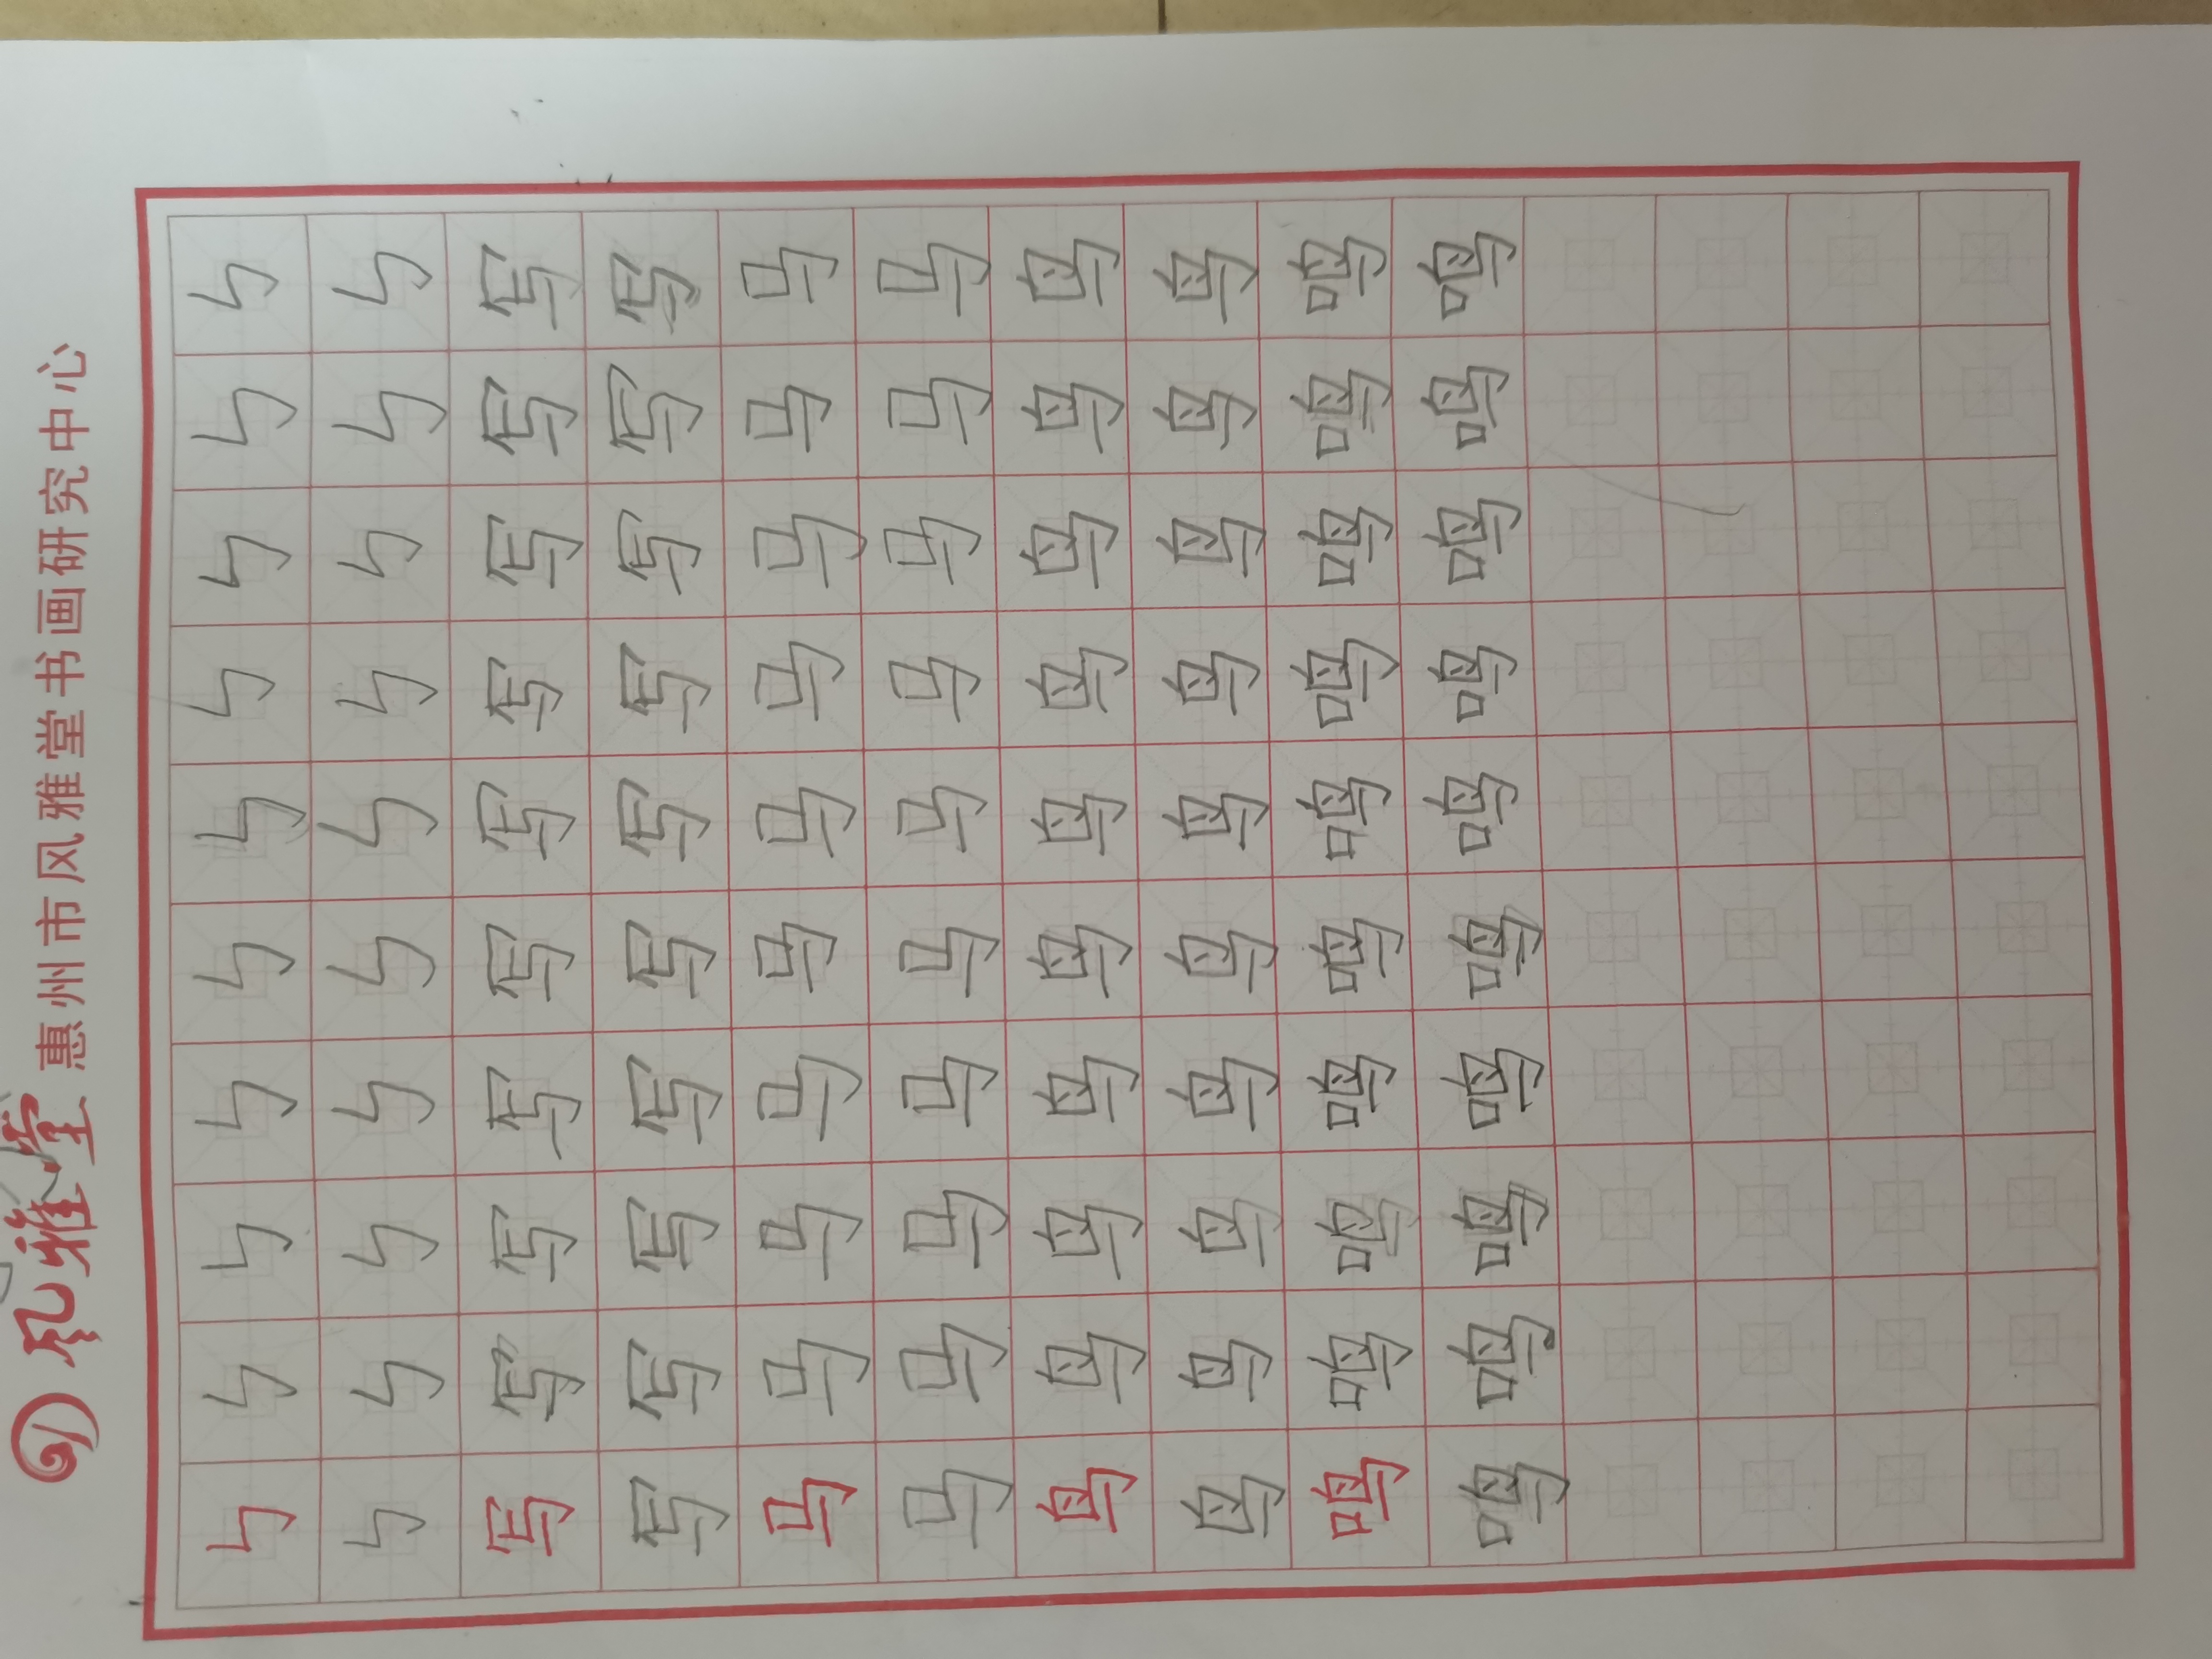 风雅堂 惠州市风雅堂书画研究中心
㇉ ㇉ ㇉ ㇉ ㇉ ㇉ ㇉ ㇉ ㇉ ㇉
㇉ ㇉ ㇉ ㇉ ㇉ ㇉ ㇉ ㇉ ㇉ ㇉
写 写 写 写 写 写 写 写 写 写
写 写 写 写 写 写 写 写 写 写
马 马 马 马 马 马 马 马 马 马
马 马 马 马 马 马 马 马 马 马
鸟 鸟 鸟 鸟 鸟 鸟 鸟 鸟 鸟 鸟
鸟 鸟 鸟 鸟 鸟 鸟 鸟 鸟 鸟 鸟
鸣 鸣 鸣 鸣 鸣 鸣 鸣 鸣 鸣 鸣
鸣 鸣 鸣 鸣 鸣 鸣 鸣 鸣 鸣 鸣